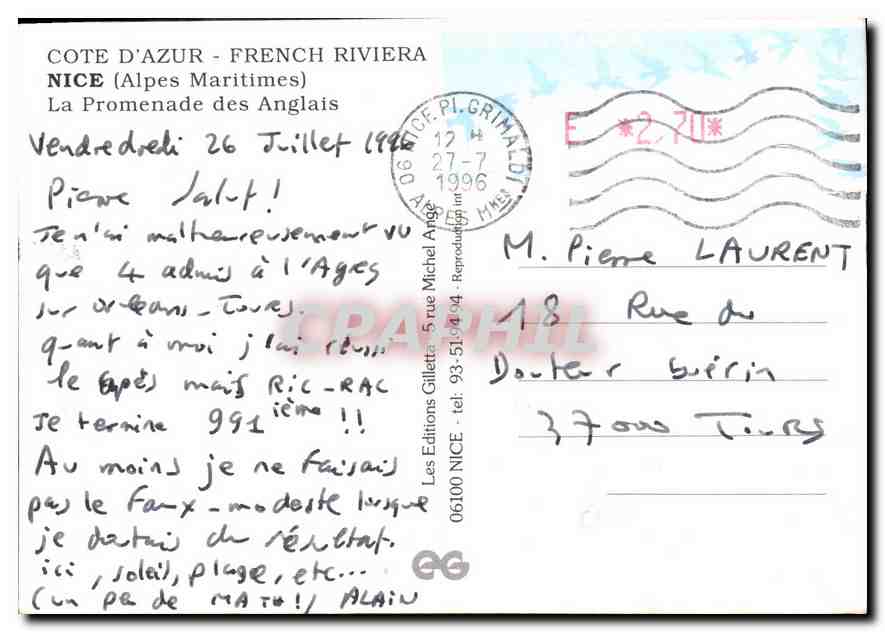 COTE D'AZUR - FRENCH RIVIERA
NICE (Alpes Maritimes)
La Promenade des Anglais
Vendredredi 26 Juillet 1996
Pierre Salut !
Je n'ai malheureusement vu
que 4 admis à l'Agreg
sur Orléans-Tours.
quant à moi j'ai réussi
le capés mais RIC-RAC
Je termine 991ième !!
Au moins je ne faisais
pas le faux-modeste lorsque
je doutais du résultat.
ici, soleil, plage, etc...
(un peu de MATH !) ALAIN
06 NICE. PL. GRIMALDI
12 H
27-7
1996
ALPES MMES
E *2,70*
M. Pierre LAURENT
18 Rue du
Docteur Guérin
37000 TOURS
Les Editions Gilletta - 5 rue Michel Ange
06100 NICE - tel: 93-51-94-94 - Reproduction int
EG
CPAPHIL